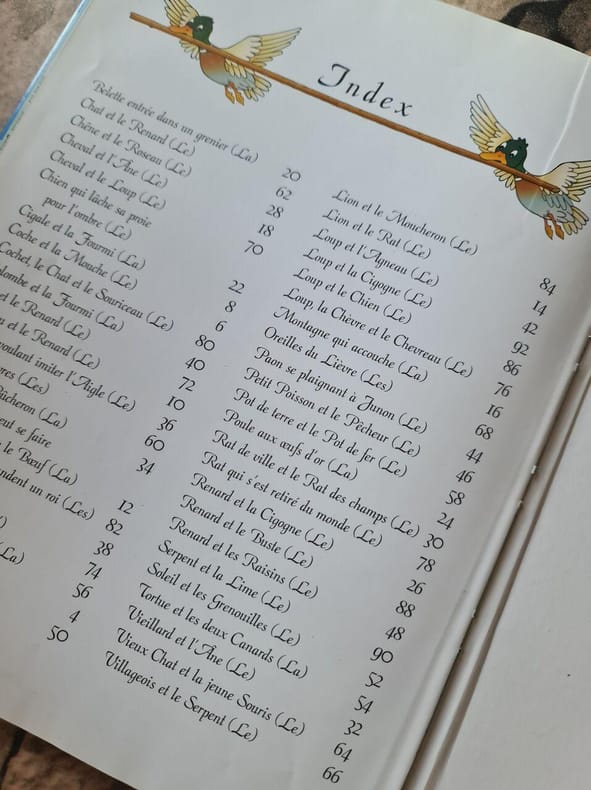 Index
Belette entrée dans un grenier (La) 20
Chat et le Renard (Le) 62
Chêne et le Roseau (Le) 28
Cheval et l'Âne (Le) 18
Cheval et le Loup (Le) 70
Chien qui lâche sa proie
pour l'ombre (Le) 22
Cigale et la Fourmi (La) 8
Coche et la Mouche (Le) 6
Cochet, le Chat et le Souriceau (Le) 80
olombe et la Fourmi (La) 40
et le Renard (Le) 72
et le Renard (Le) 10
voulant imiter l'Aigle (Le) 36
(Les) 60
Bûcheron (La) 34
eut se faire
le Bœuf (La) 12
ndent un roi (Les) 82
38
74
(La) 56
4
50
Lion et le Moucheron (Le) 84
Lion et le Rat (Le) 14
Loup et l'Agneau (Le) 42
Loup et la Cigogne (Le) 92
Loup et le Chien (Le) 86
Loup, la Chèvre et le Chevreau (Le) 76
Montagne qui accouche (La) 16
Oreilles du Lièvre (Les) 68
Paon se plaignant à Junon (Le) 44
Petit Poisson et le Pêcheur (Le) 46
Pot de terre et le Pot de fer (Le) 58
Poule aux œufs d'or (La) 24
Rat de ville et le Rat des champs (Le) 30
Rat qui s'est retiré du monde (Le) 78
Renard et la Cigogne (Le) 26
Renard et le Buste (Le) 88
Renard et les Raisins (Le) 48
Serpent et la Lime (Le) 90
Soleil et les Grenouilles (Le) 52
Tortue et les deux Canards (La) 54
Vieillard et l'Âne (Le) 32
Vieux Chat et la jeune Souris (Le) 64
Villageois et le Serpent (Le) 66